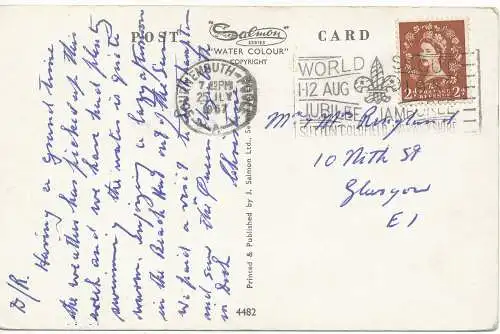 POST CARD
Salmon
SERIES
"WATER COLOUR"
COPYRIGHT
BOURNEMOUTH-POOLE
7 PM
JLY
1957
A
WORLD SCOUT
1-12 AUG
JUBILEE JAMBOREE
SUTTON COLDFIELD
2½D
D/R Having a Grand time
the weather has picked up this
week and we have had plenty
swimming the water is quite
warm. Enjoying a lazy afternoon
in the Beach Hut out of the Sun
we paid a visit to Southampton
and saw the "Queen
in dock
Mrs Ringland
10 Nith St
Glasgow
E1
Printed & Published by J. Salmon Ltd., Se
4482